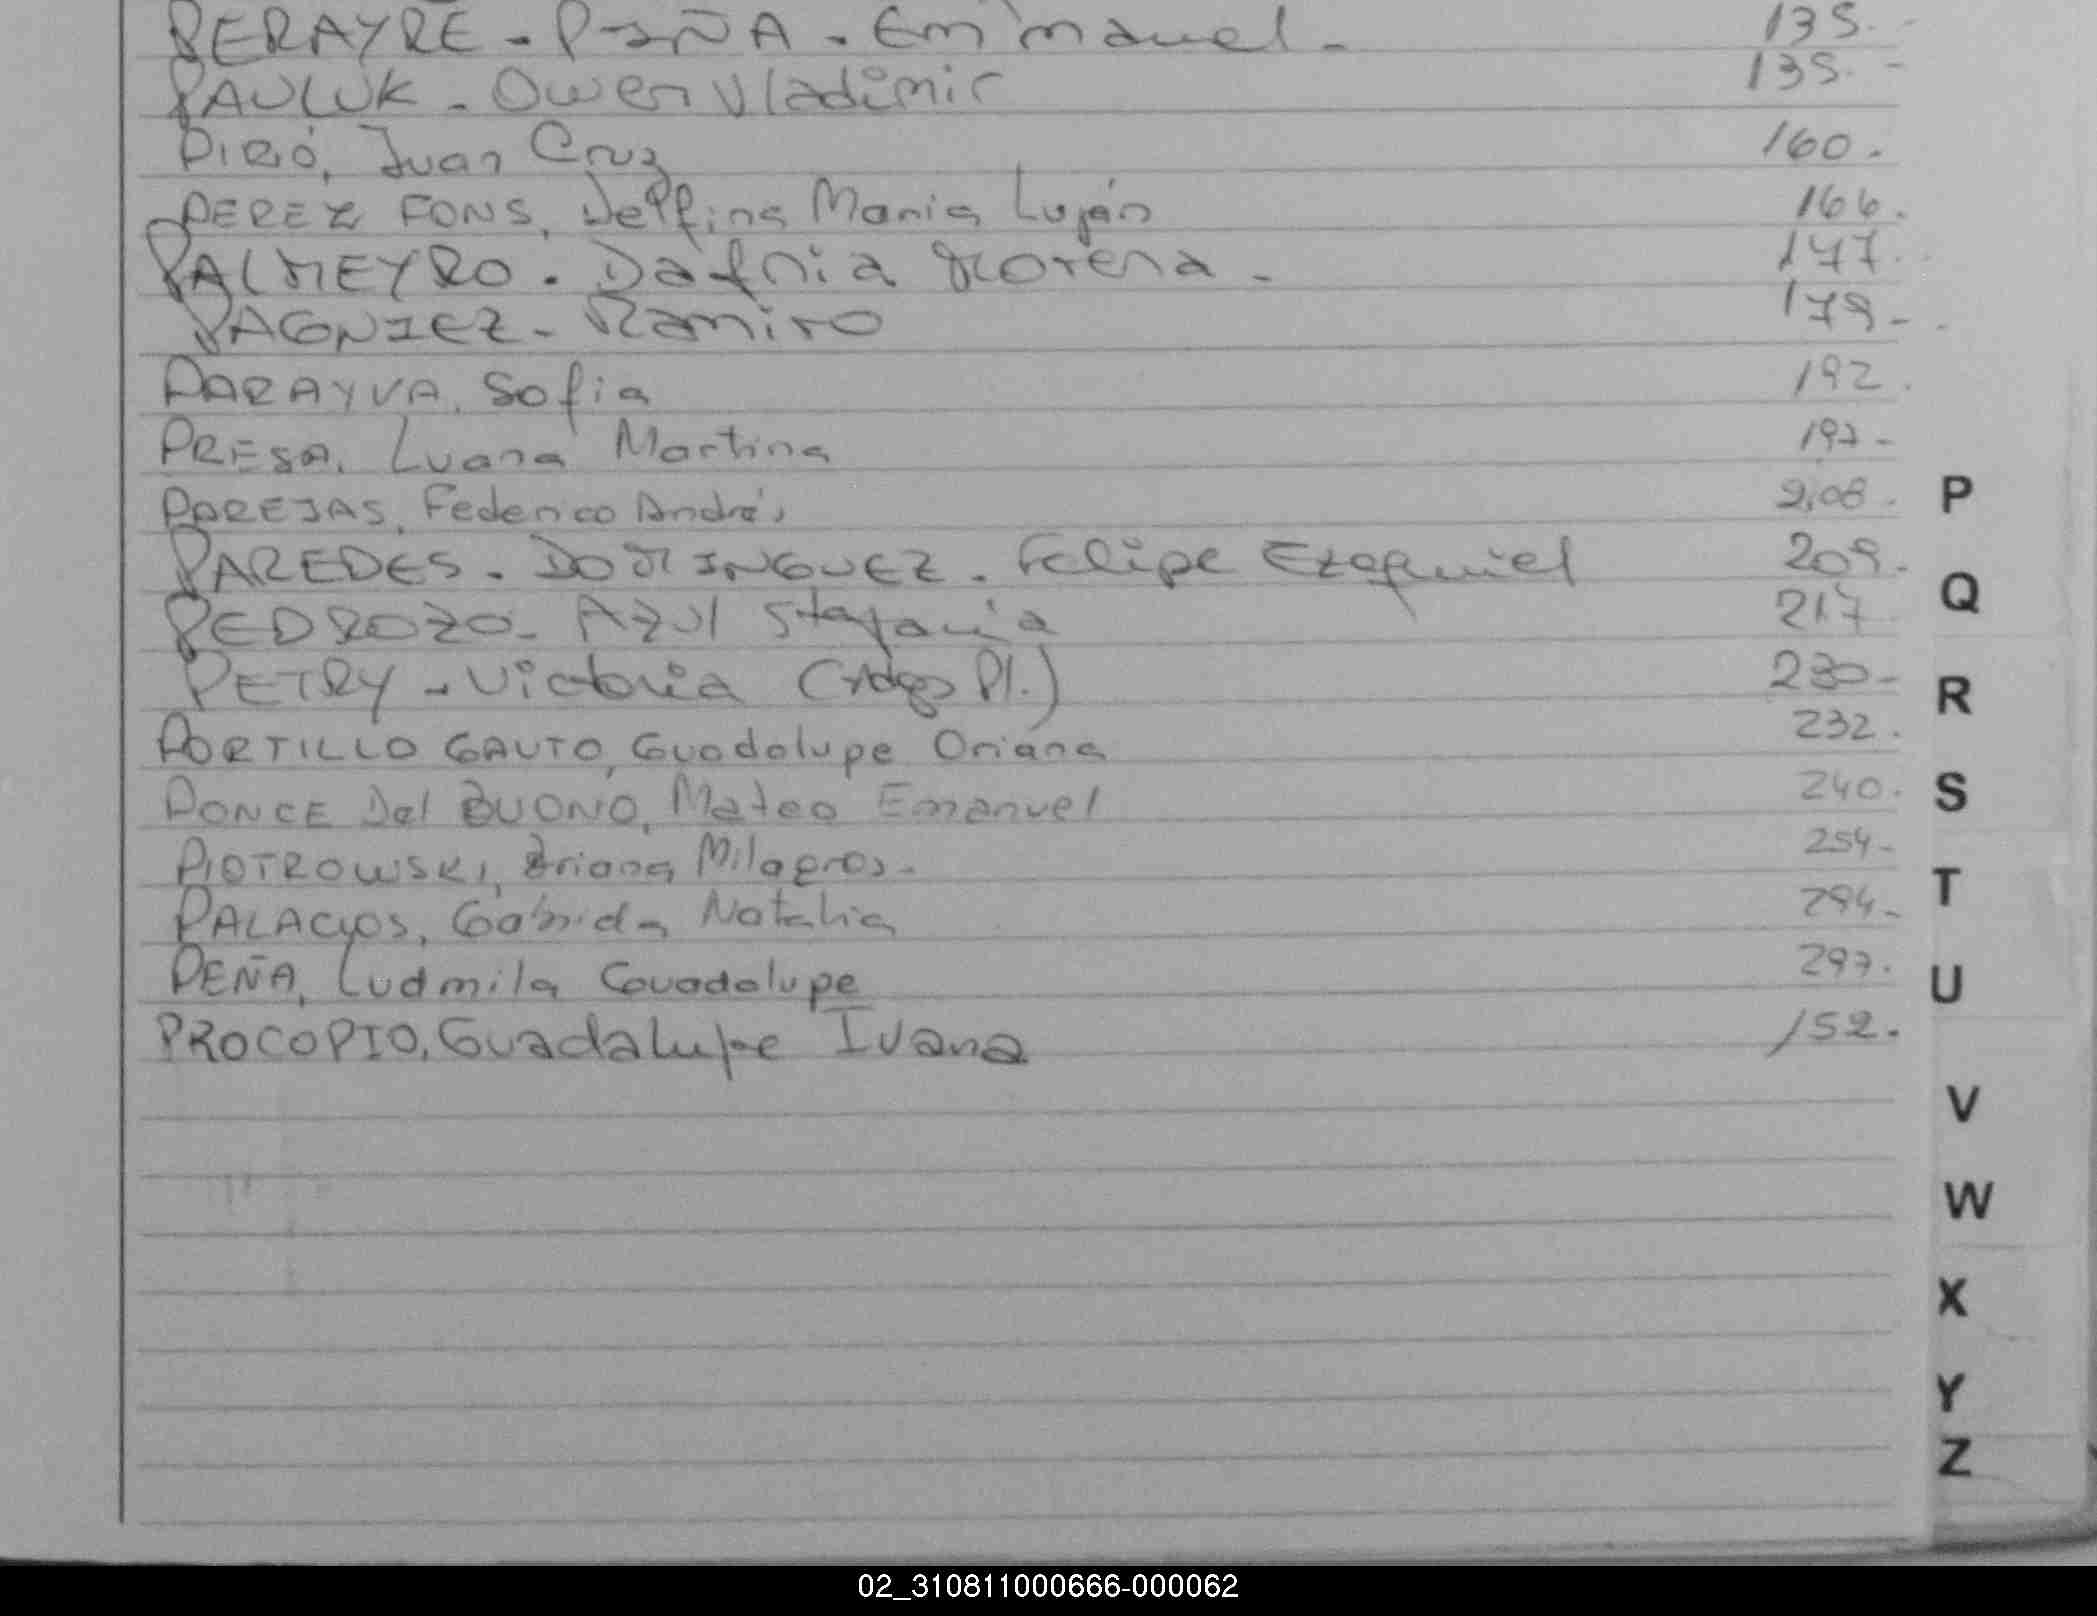 PERAYRE - PEÑA - Emmanuel - 135. -
PAULUK - Owen Vladimir 135. -
PIRIÓ, Juan Cruz 160.
PEREZ FONS, Delfina Maria Luján 166.
PALMEYRO. Dafnia Morena - 177.
PAGNIEZ - Ramiro 179 -
PARAYVA, Sofia 192.
PRESA, Luana Martina 197 -
PAREJAS, Federico Andrés 208.
PAREDES. DOMINGUEZ. Felipe Ezequiel 209.
PEDROZO - Azul Stefania 217
PETRY - Victoria Pl.) 230 -
PORTILLO GAUTO, Guadalupe Oriana 232.
PONCE Del BUONO, Mateo Emanuel 240.
PIOTROWSKI, Briana Milagros - 254 -
PALACIOS, Gabriela Natalia 294 -
PEÑA, Ludmila Guadalupe 297.
PROCOPIO, Guadalupe Ivana 152.
P
Q
R
S
T
U
V
W
X
Y
Z
02_310811000666-000062